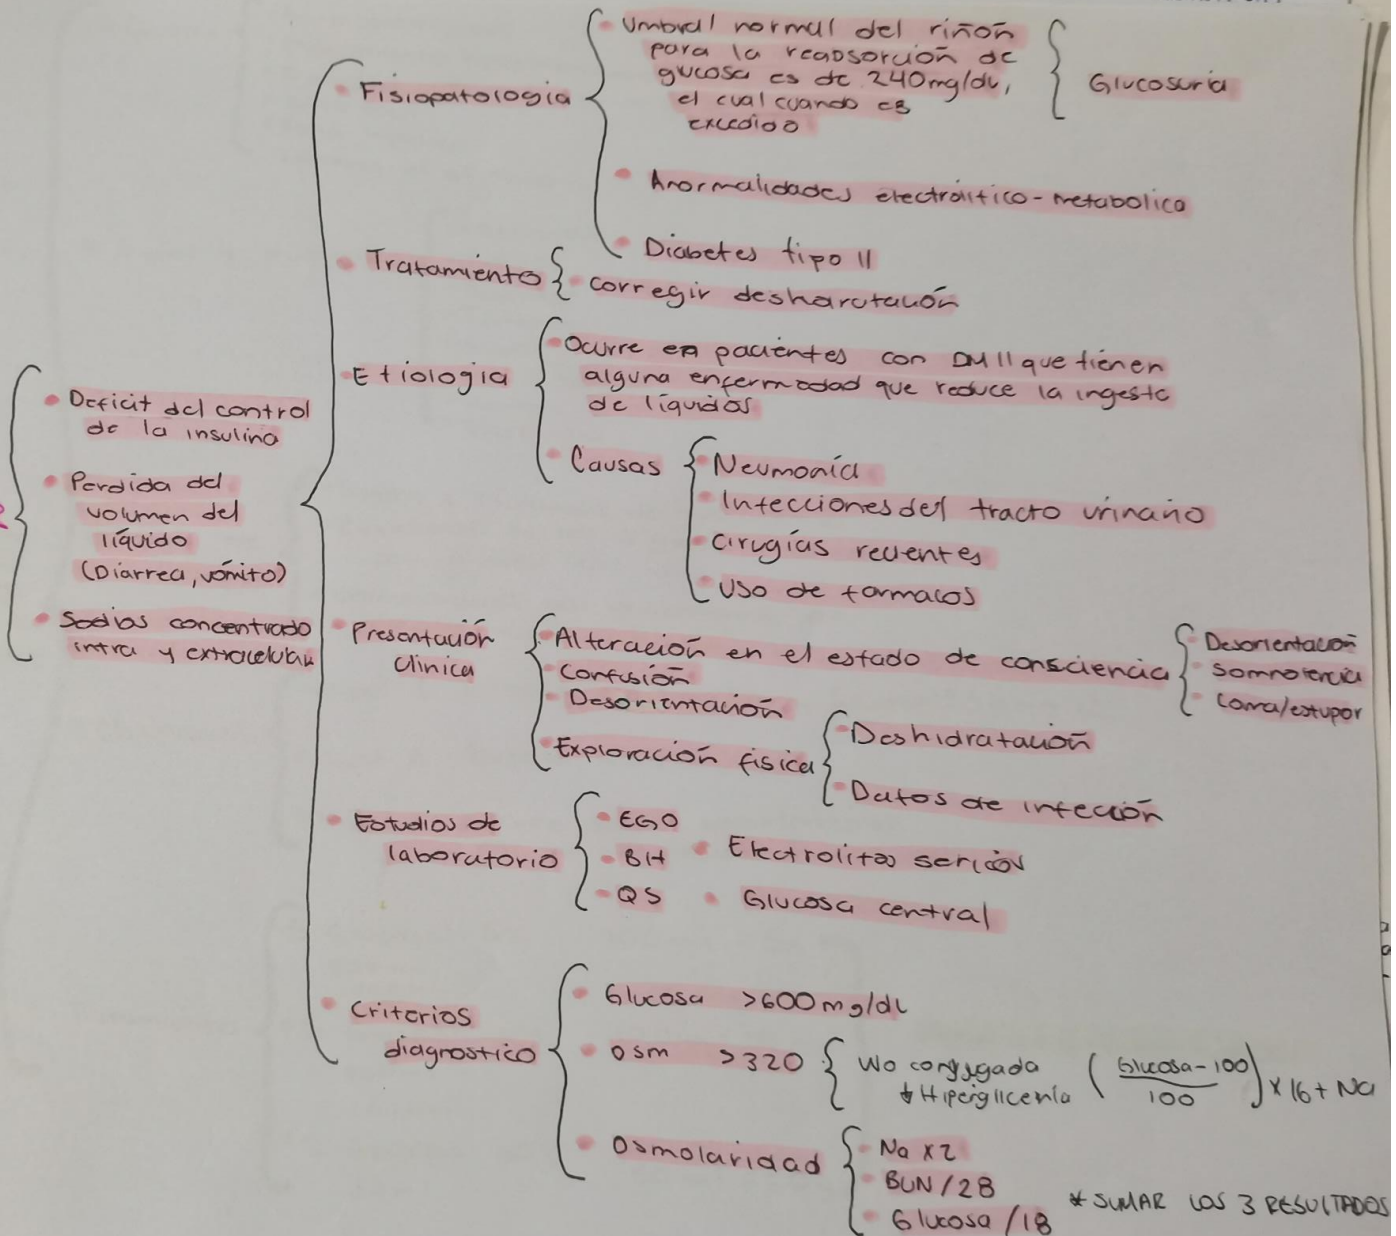 • Deficit del control
de la insulina
• Perdida del
volumen del
líquido
(Diarrea, vómito)
• Sodios concentrado
intra y extracelular
• Fisiopatologia
• Umbral normal del riñon
para la reabsorción de
glucosa es de 240mg/dL,
el cual cuando es
excedido
Glucosuria
• Anormalidades electrolítico-metabolica
• Diabetes tipo II
• Tratamiento
• corregir
• Etiologia
• Ocurre en pacientes con DM II que tienen
alguna enfermedad que reduce la ingesta
de líquidos
• Causas
• Neumonía
• Infecciones del tracto urinario
• Cirugías recientes
• Uso de farmacos
• Presentación
clinica
• Alteración en el estado de consciencia
• Desorientación
• Somnolencia
• Coma/estupor
• Confusión
• Desorientación
• Exploración fisica
• Deshidratación
• Datos de infección
• Estudios de
laboratorio
• EGO
• BH
• QS
• Electrolitos sericos
• Glucosa central
• Criterios
diagnostico
• Glucosa >600mg/dL
• Osm >320
conjugada
Hiperglicemia (Glucosa-100/100) x 16 + Na
• Osmolaridad
• Na x2
• BUN/28
• Glucosa/18
* SUMAR LOS 3 RESULTADOS